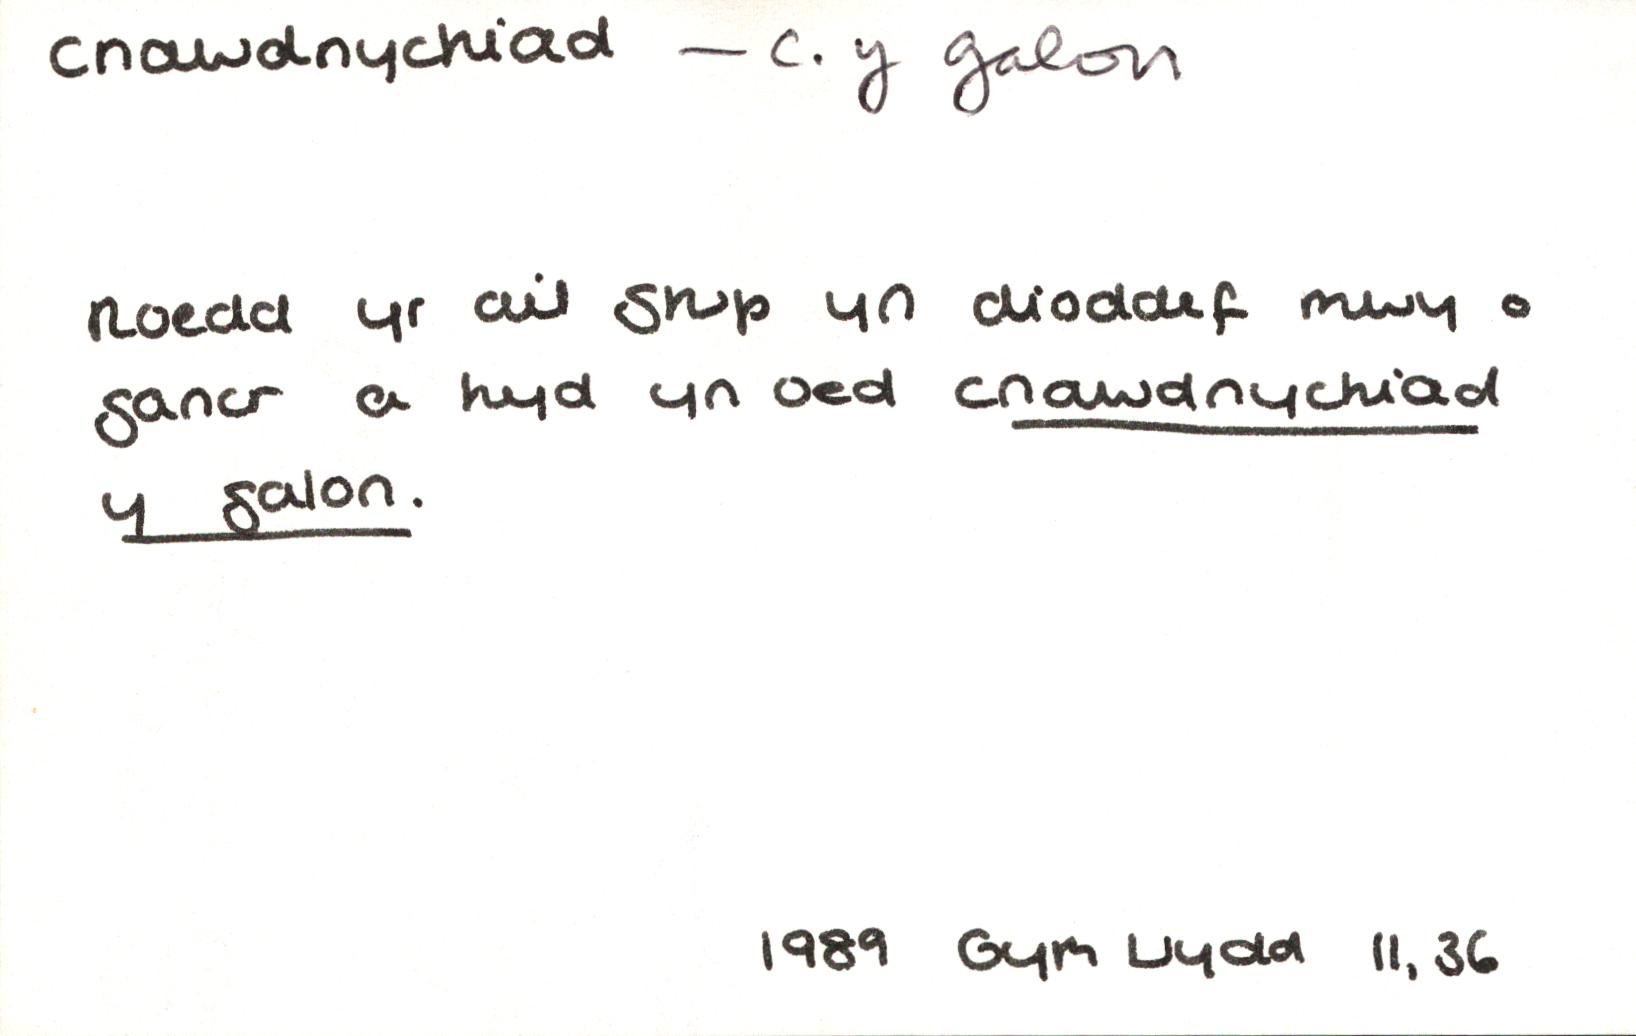 cnawdnychiad — c. y galon
Roedd yr ail grŵp yn dioddef mwy o
gancr a hyd yn oed cnawdnychiad
y galon.
1989 Gym Llydd 11, 36